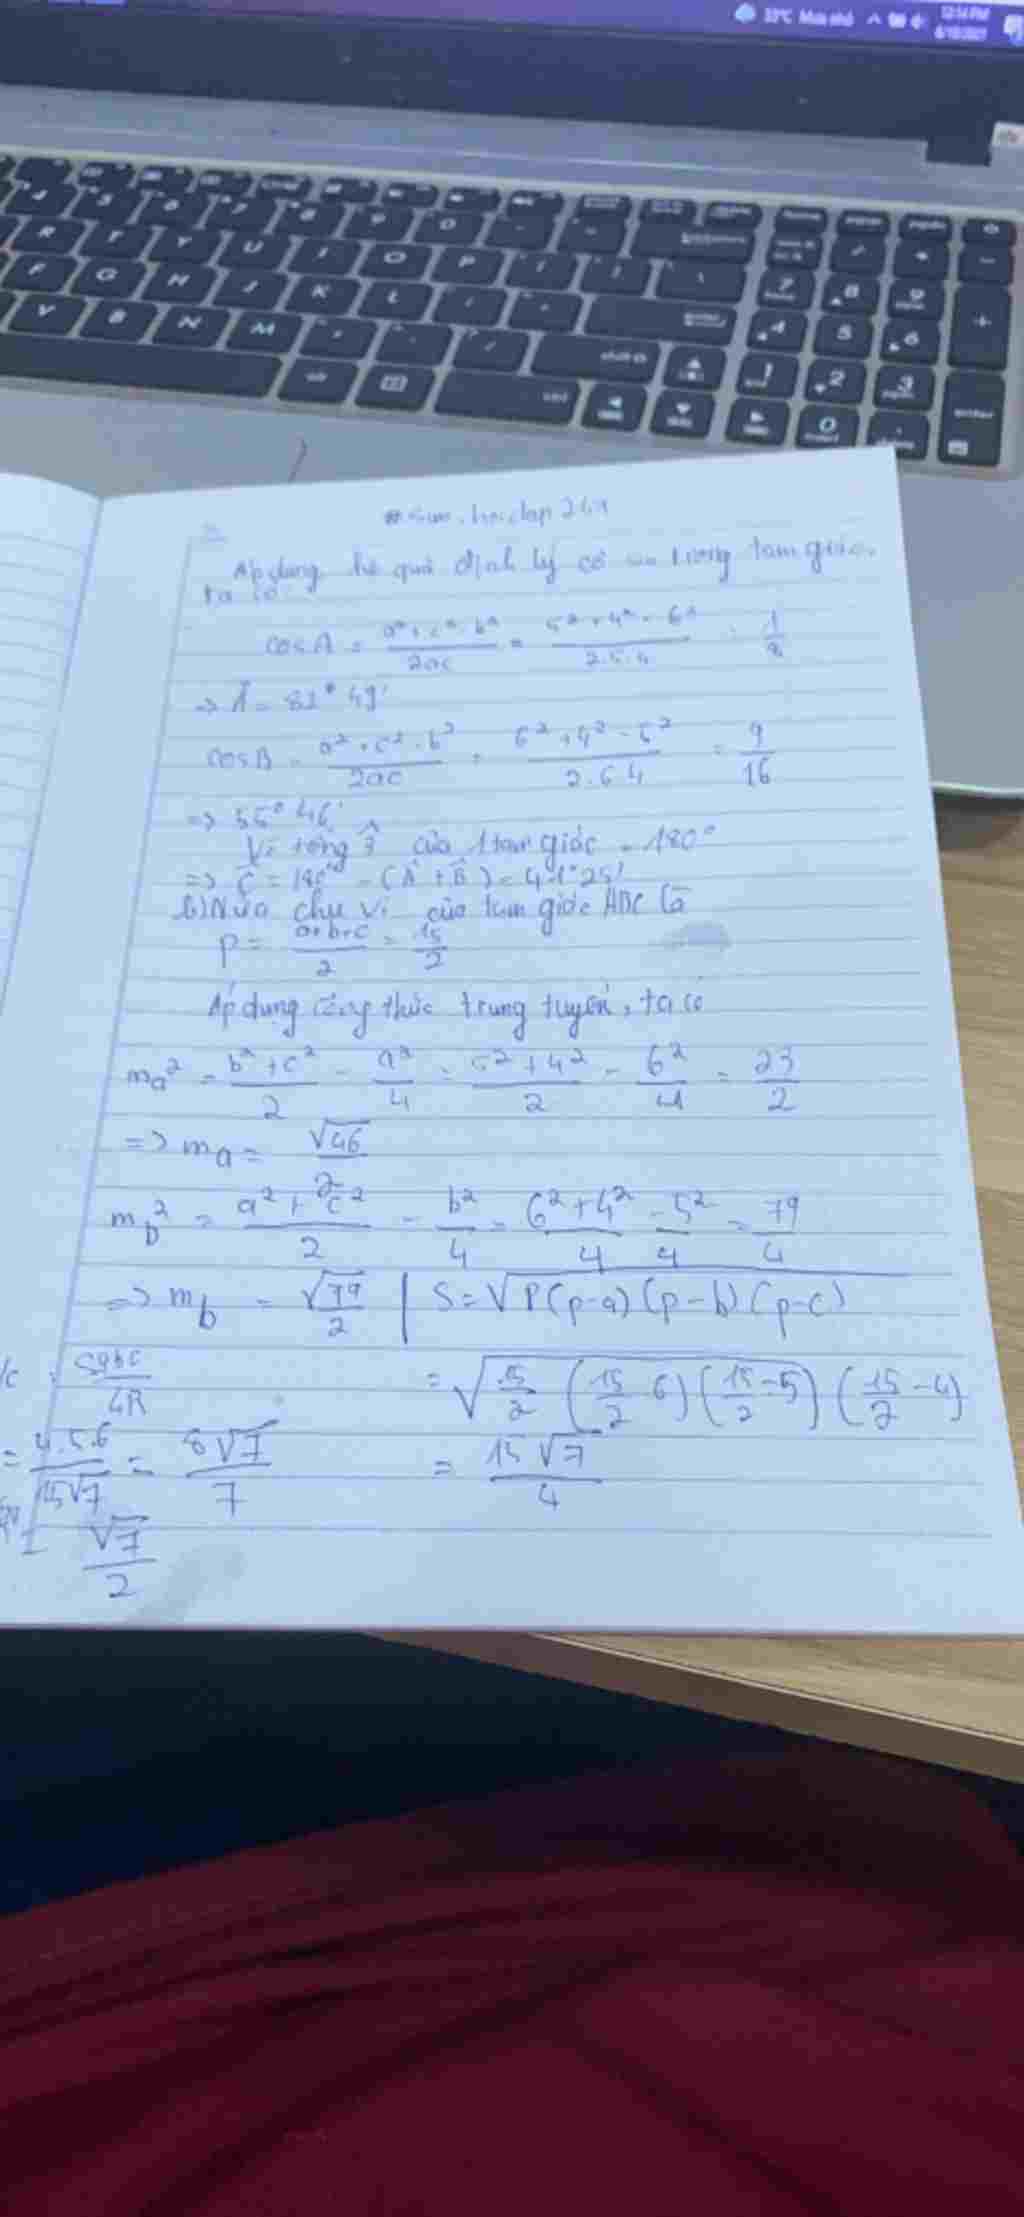 33°C Mưa nhỏ
12:14 PM
Áp dụng hệ quả định lý cô sin trong tam giác,
ta có
cosA = a²+c²-b² / 2ac = 5²+4²-6² / 2.5.4 = 1/8
=> Â = 82° 49'
cosB = a²+c²-b² / 2ac = 6²+4²-5² / 2.6.4 = 9/16
=> 55° 46'
Vì tổng 3^ của 1 tam giác = 180°
=> Ĉ = 180° - (Â + B̂) = 41°25'
b) Nửa chu vi của tam giác ABC là
P = a+b+c / 2 = 15/2
Áp dụng công thức trung tuyến, ta có
ma² = b²+c² / 2 - a²/4 = 5²+4² / 2 - 6²/4 = 23/2
=> ma = √46 / 2
mb² = a²+c² / 2 - b²/4 = 6²+4² / 4 - 5²/4 = 79/4
=> mb = √79 / 2 | S = √P(p-a)(p-b)(p-c)
/c Sabc / 4R = √15/2 (15/2 - 6)(15/2 - 5)(15/2 - 4)
= 4.5.6 / 15√7 = 8√7 / 7 = 15√7 / 4
√7 / 2